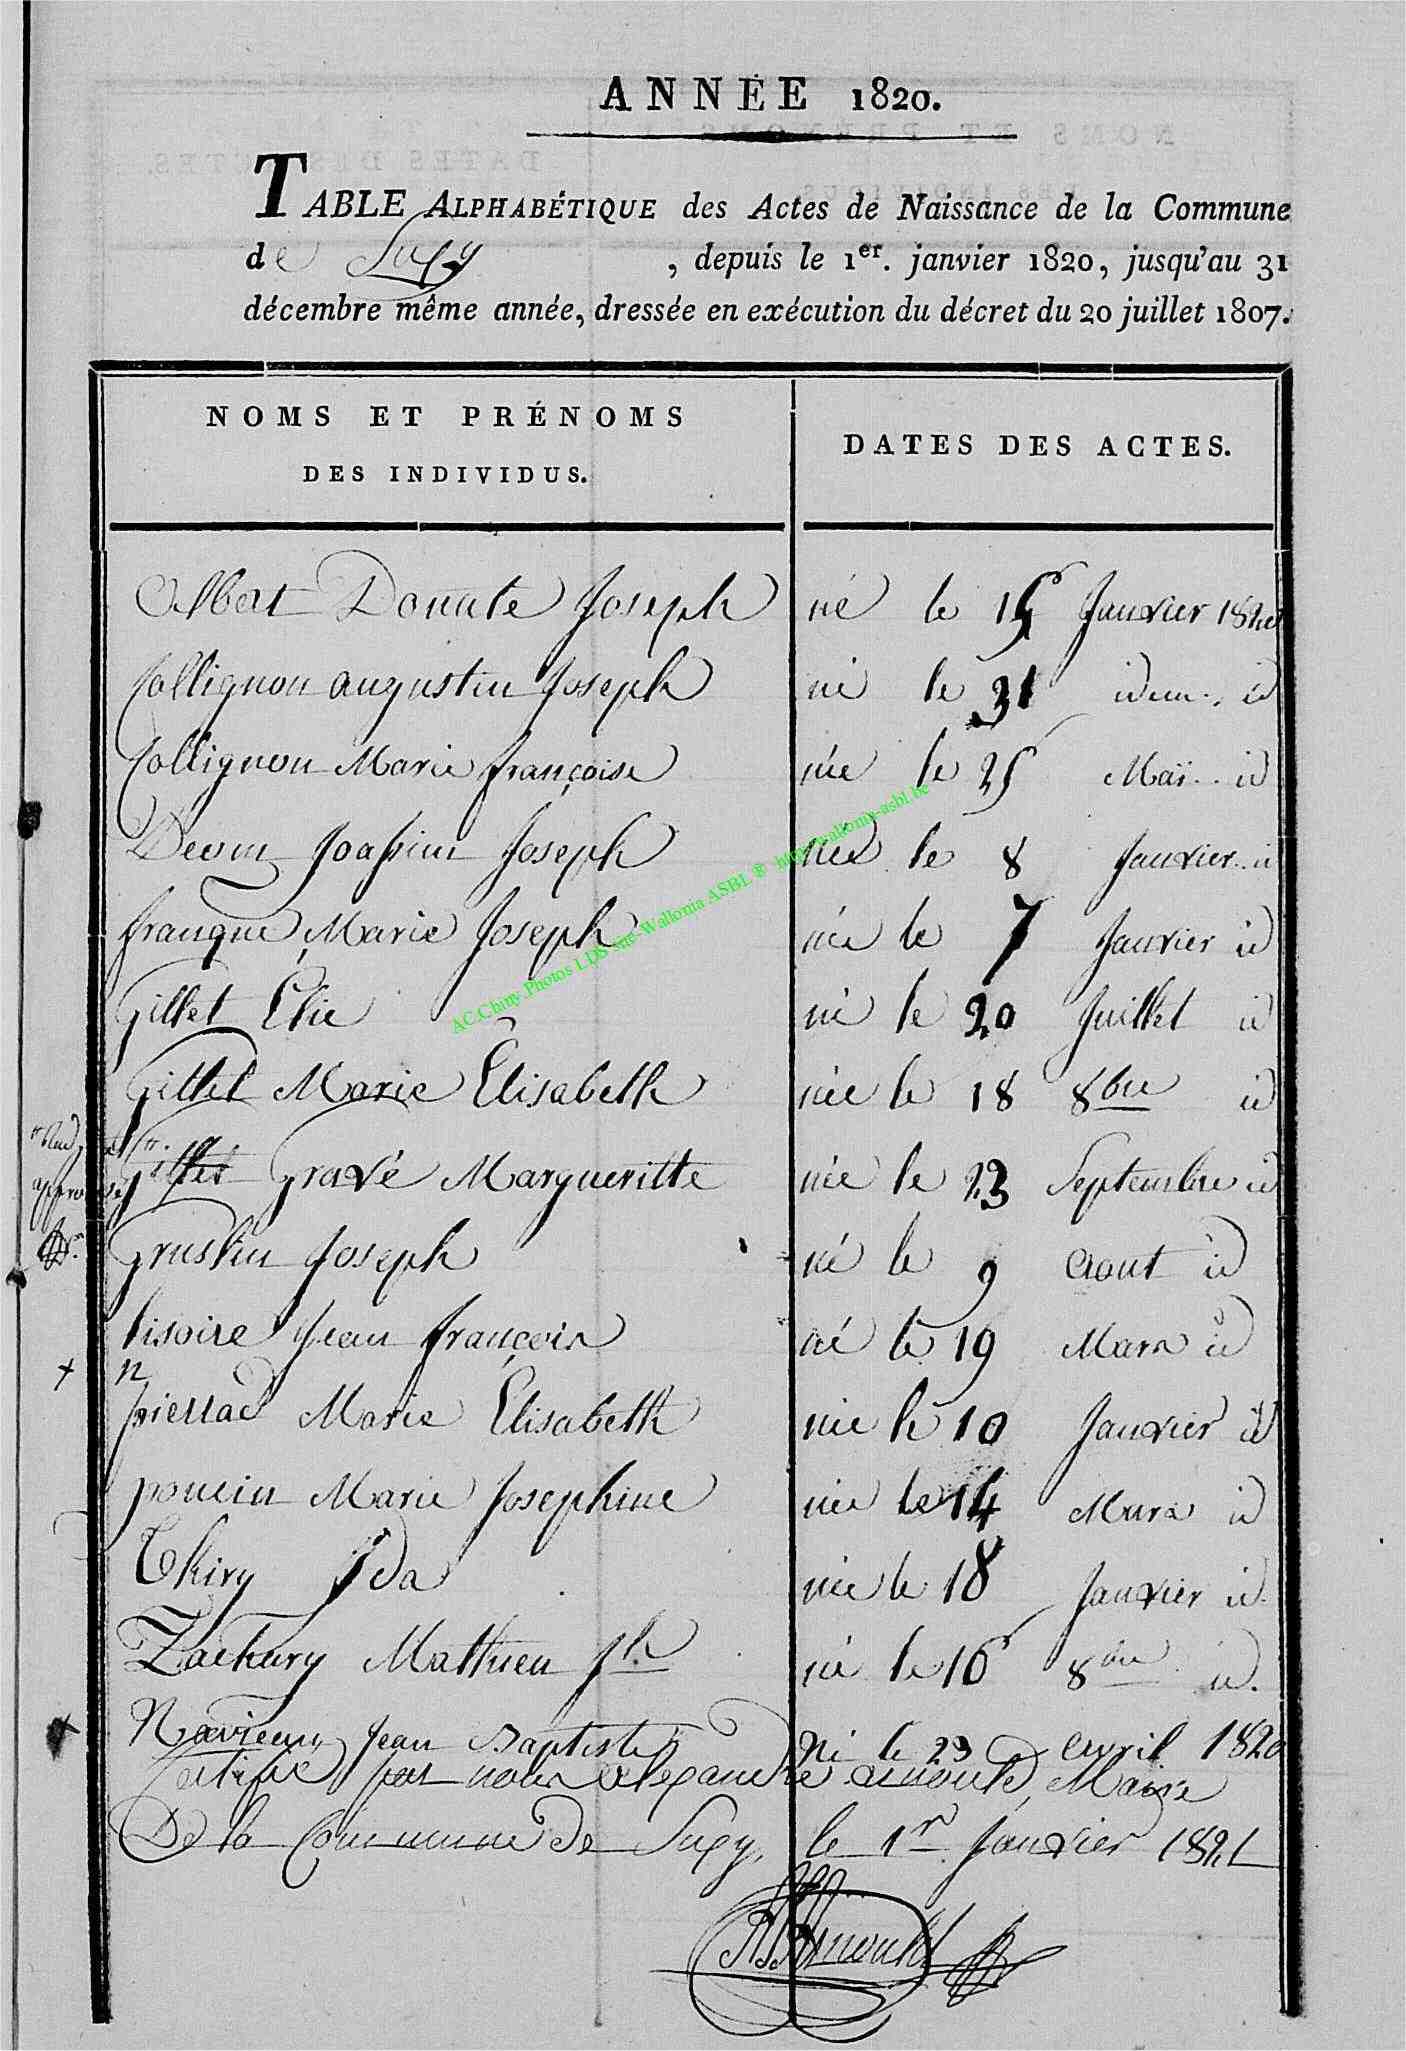 ANNÉE 1820.
TABLE ALPHABÉTIQUE des Actes de Naissance de la Commune
de Suxy , depuis le 1er. janvier 1820, jusqu'au 31
décembre même année, dressée en exécution du décret du 20 juillet 1807.
NOMS ET PRÉNOMS
DES INDIVIDUS.
DATES DES ACTES.
Albert Donate Joseph né le 15 Janvier 1820
Collignon augustin Joseph né le 31 idem. id
Collignon Marie françoise née le 25 Maï.. id
Joseph née le 8 Janvier.. id
franque Marie Joseph née le 7 Janvier id
Gillet Elie né le 20 Juillet id
Gillet Marie Elisabeth née le 18 8bre id
Gillet Gravé Margueritte née le 23 Septembre id
approuvé
Gruslin Joseph né le 9 Aout id
lisoire Jean françois né le 19 Mars id
n
pierrad Marie Elisabeth née le 10 Janvier id
poncin Marie Josephine née le 14 Mars id
Thiry Ida née le 18 Janvier id.
Zachary Mathieu Jh né le 16 8bre id.
Jean Baptiste Né le 23 avril 1820
Certifié par nous alexandre arnould, Maire
De la Commune de Suxy, le 1r Janvier 1821
Arnould
AC.Chiny.Photos LDS site-Wallonia ASBL ® http://wallonia-asbl.be